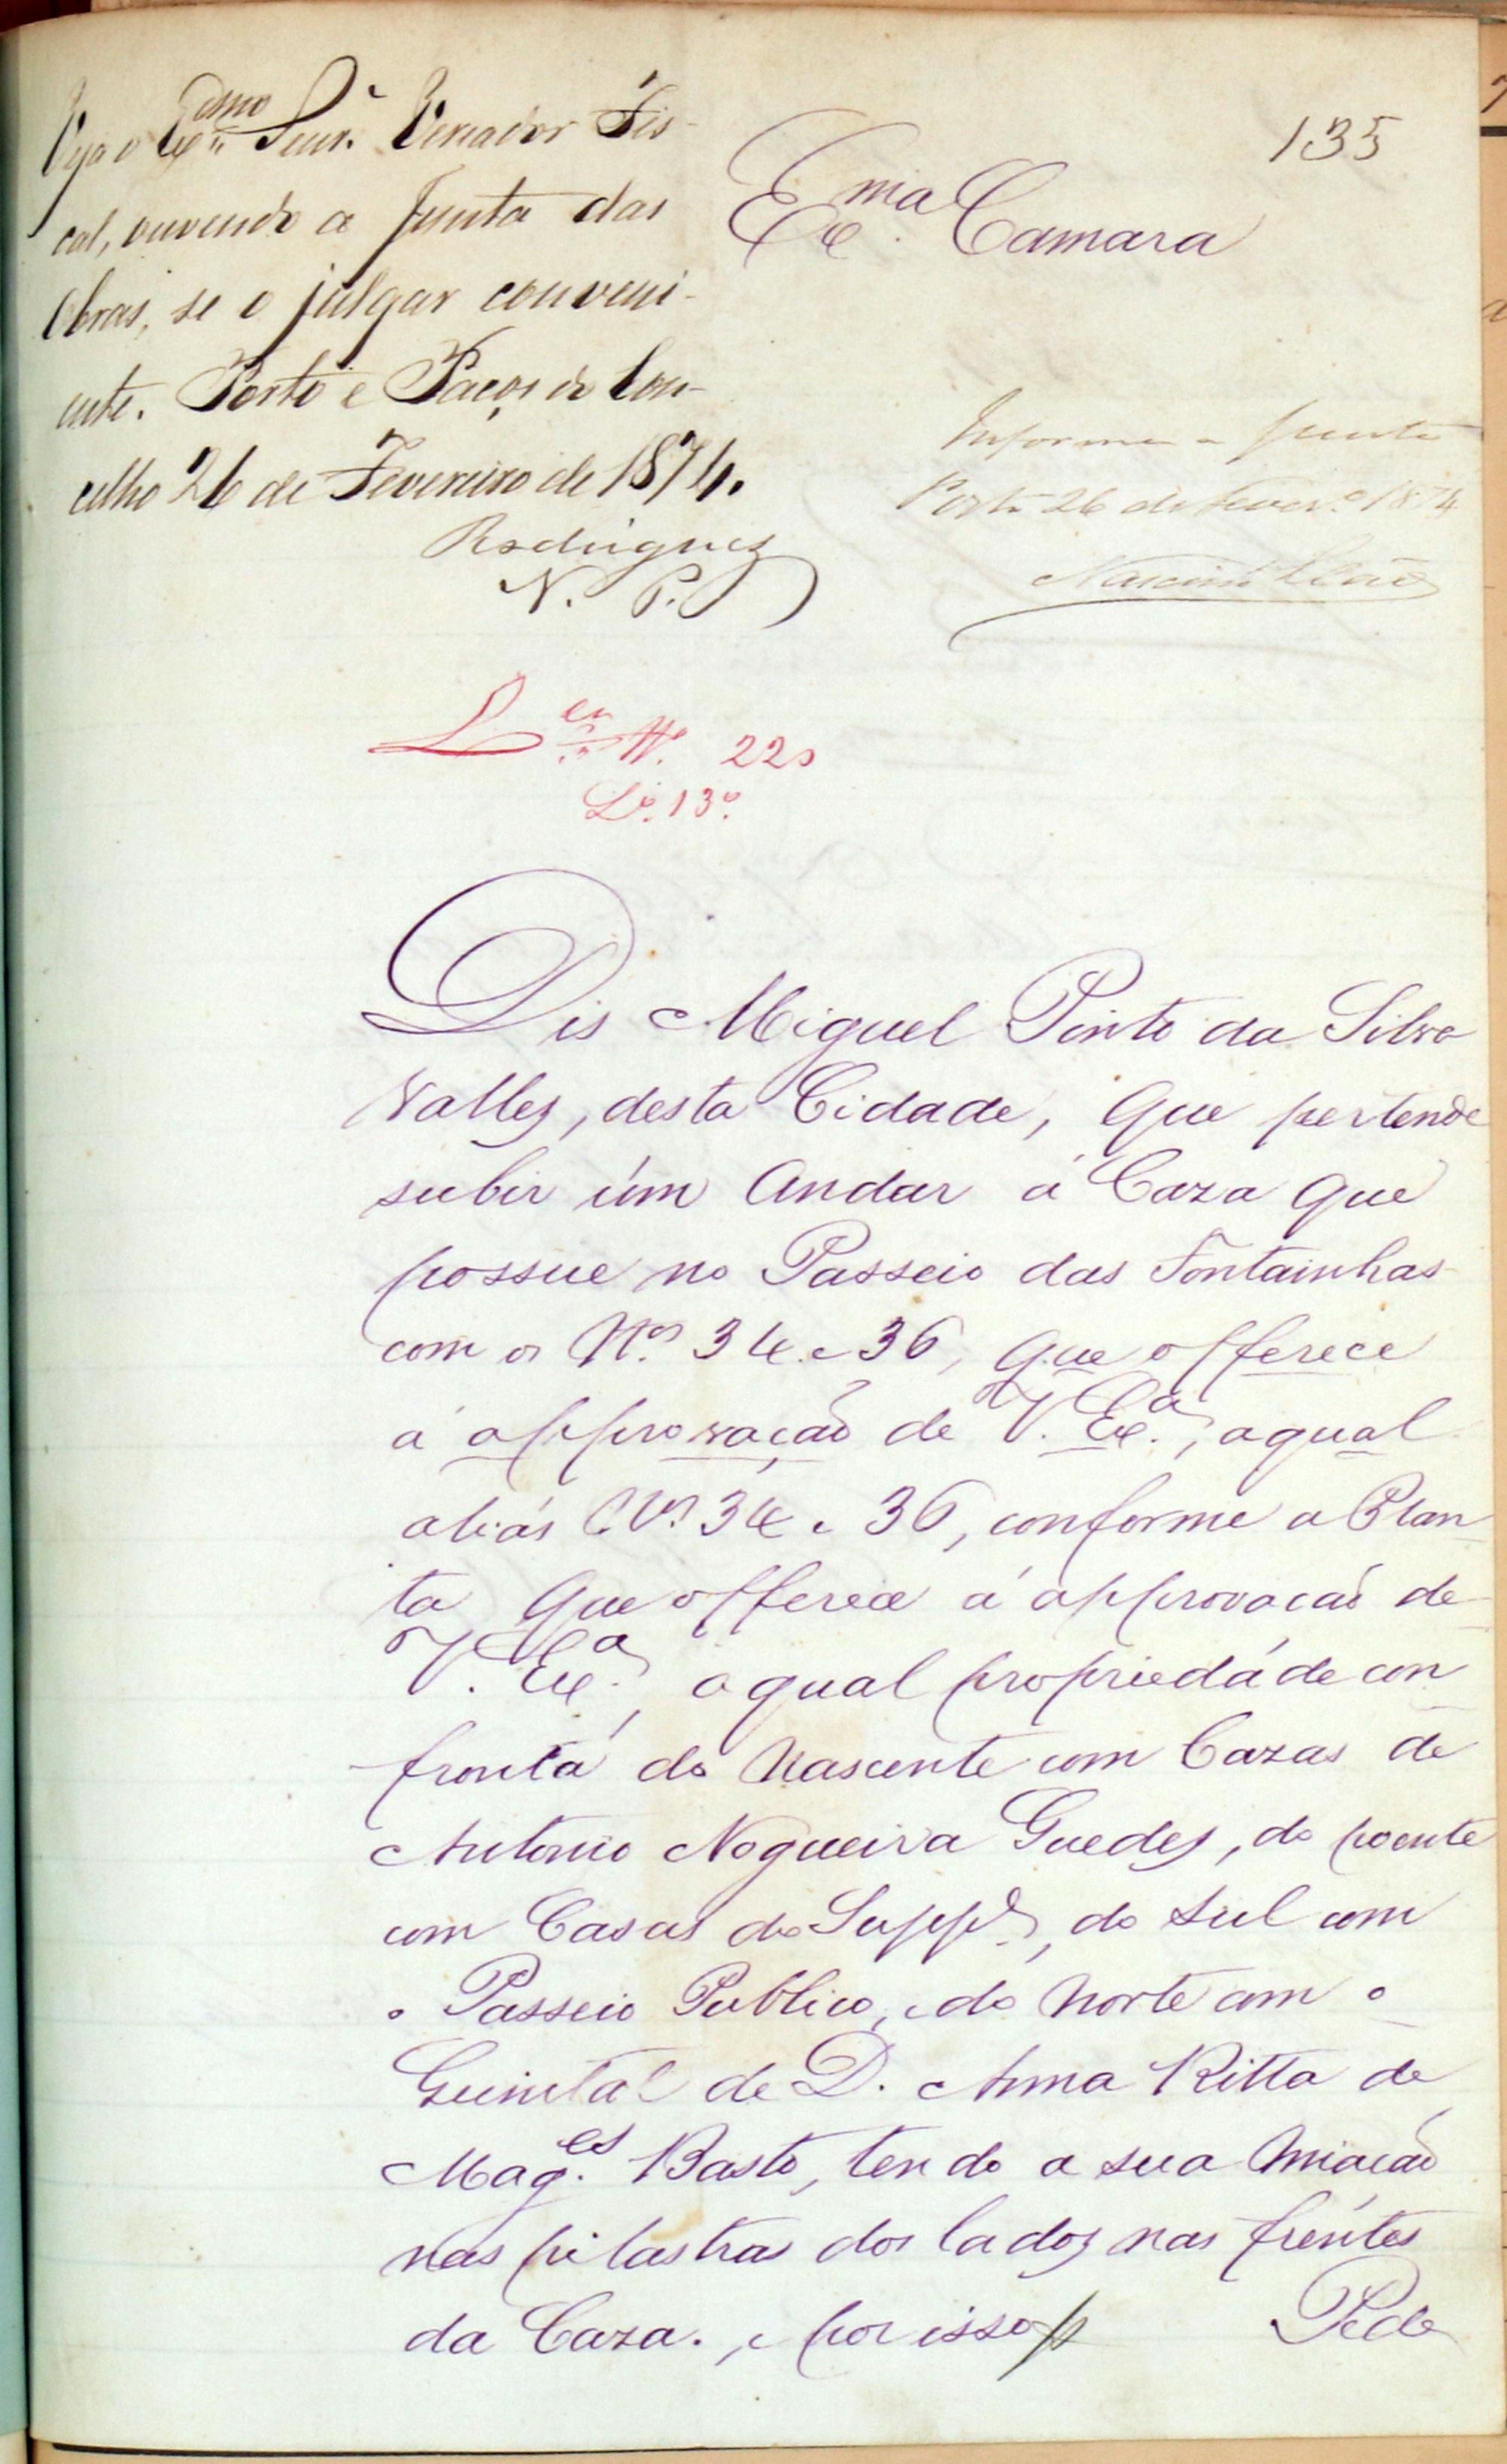 135
Veja o Ex.mo Senr. Vereador Fis-
cal, ouvindo a Junta das
Obras, se o julgar conveni-
ente. Porto e Paços do Con-
celho 26 de Fevereiro de 1874.
Rodrigues
V. P.
Ex.ma Camara
Informe a Junta
Porto 26 de Fever.o 1874
L.ca N.o 220
L.o 13.o
Dis Miguel Pinto da Silva
Valles, desta Cidade, que pertende
subir úm andar á Caza que
possue no Passeio das Fontainhas
com os N.os 34 e 36, que offerece
á approvação de V. Ex.a, aqual
aliás N.os 34 e 36, conforme a Plan
ta que offerece á approvacaõ de
V. Ex.a, aqual propriedáde con
fronta do Nascente com Cazas de
Antonio Nogueira Guedes, do poente
com Casas do Supp.e, do Sul com
o Passeio Publico, e do Norte com o
Quintal de D. Anna Ritta de
Mag.es Basto, tendo a sua
nas pilastras dos lados nas fréntes
da Caza., e por isso p
Pede